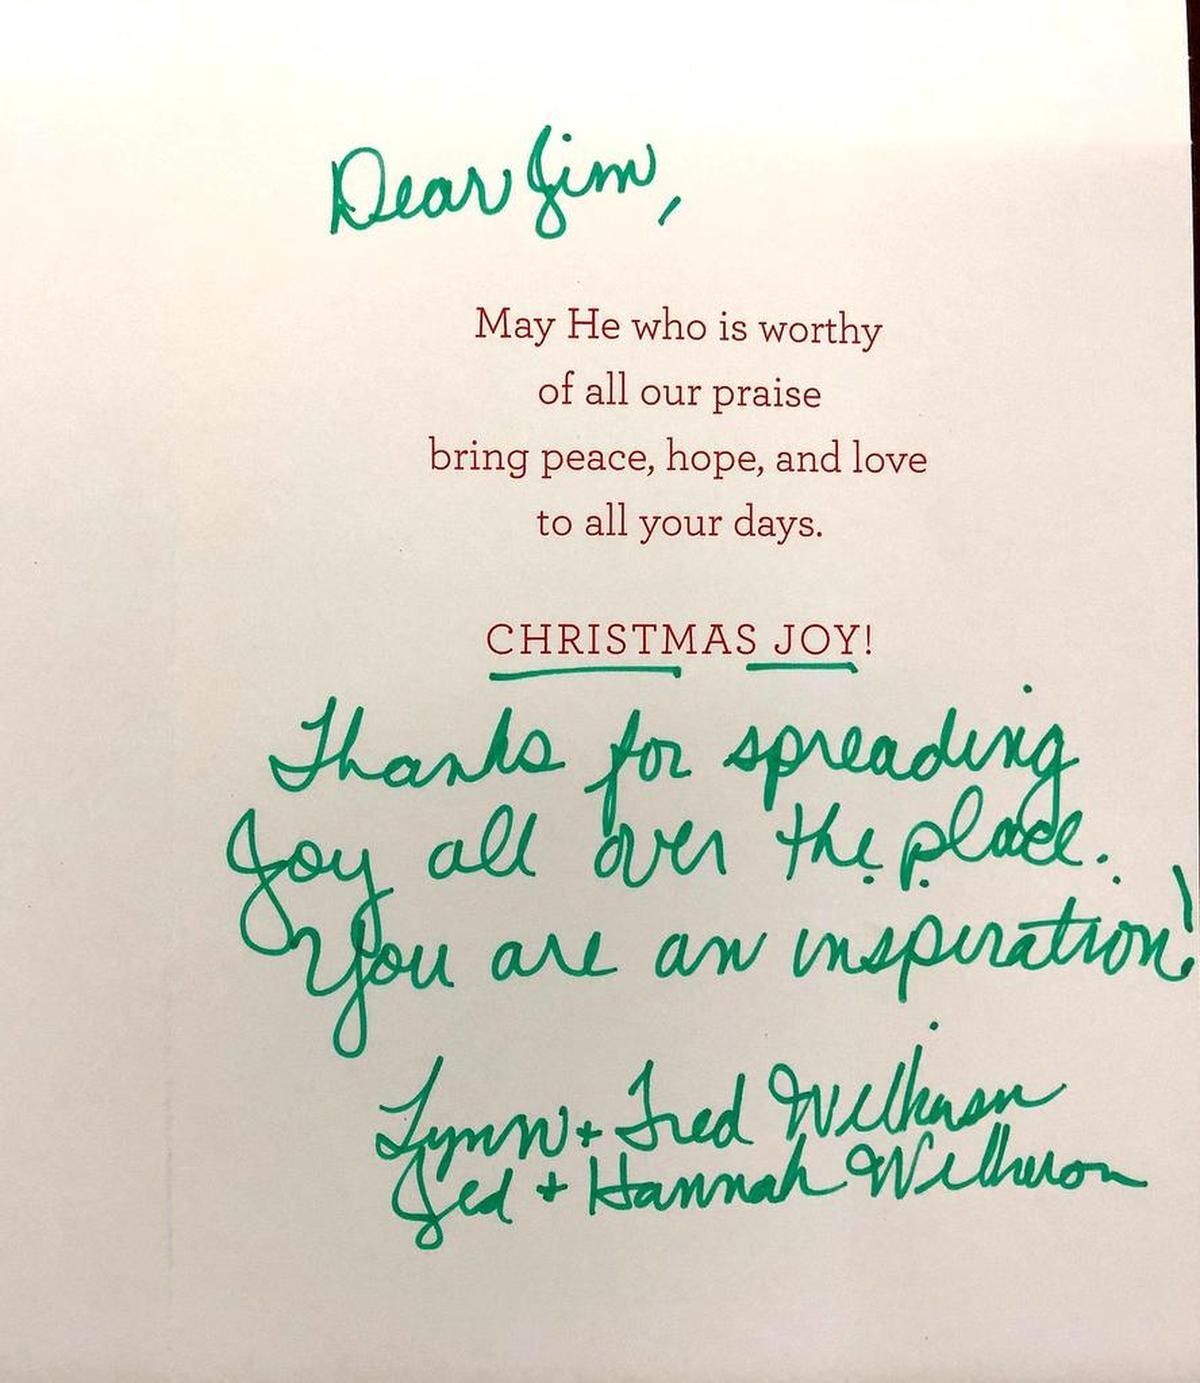 Dear Jim,
May He who is worthy
of all our praise
bring peace, hope, and love
to all your days.
CHRISTMAS JOY!
Thanks for spreading
Joy all over the place.
You are an inspiration!
Lynn + Fred Wilkinson
Jed + Hannah